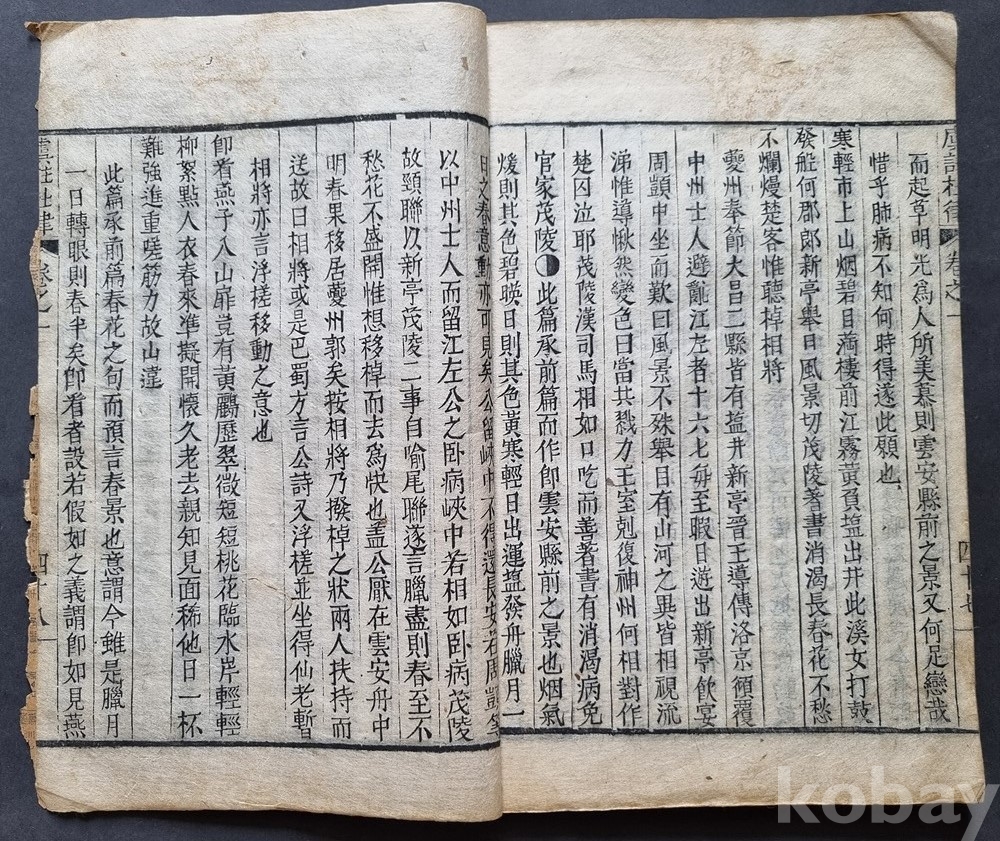 虞註杜律 卷之一 四十七
而起草明光爲人所美慕則雲安縣前之景又何足戀哉
惜乎肺病不知何時得遂此願也
寒輕市上山烟碧日滿樓前江霧黃負塩出井此溪女打鼓
發船何郡郎新亭舉目風景切茂陵著書消渴長春花不愁
不爛熳楚客惟聽棹相將
夔州奉節大昌二縣皆有塩井新亭晉王導傳洛京傾覆
中州士人避亂江左者十六七每至暇日遊出新亭飮宴
周顗中坐而歎曰風景不殊舉目有山河之異皆相視流
涕惟導愀然變色曰當共戮力王室剋復神州何相對作
楚囚泣耶茂陵漢司馬相如口吃而善著書有消渴病免
官家茂陵◑此篇承前篇而作卽雲安縣前之景也烟氣
煖則其色碧暎日則其色黃寒輕日出運塩發舟臘月一
日之春意動亦可見矣公留峽中不得還長安若周顗等
以中州士人而留江左公之卧病峽中若相如卧病茂陵
故頸聯以新亭茂陵二事自喻尾聯遂言臘盡則春至不
愁花不盛開惟想移棹而去爲快也盖公厭在雲安舟中
明春果移居夔州郭矣按相將乃撥棹之狀兩人扶持而
送故曰相將或是巴蜀方言公詩又浮槎並坐得仙老暫
相將亦言浮槎移動之意也
卽看燕子入山扉豈有黃鸝歷翠微短短桃花臨水岸輕輕
柳絮點人衣春來准擬開懷久老去親知見面稀他日一杯
難強進重嗟筋力故山違
此篇承前篇春花之句而預言春景也意謂今雖是臘月
一日轉眼則春半矣卽看者設若假如之義謂卽如見燕
虞註杜律 卷之一 四十八
kobay